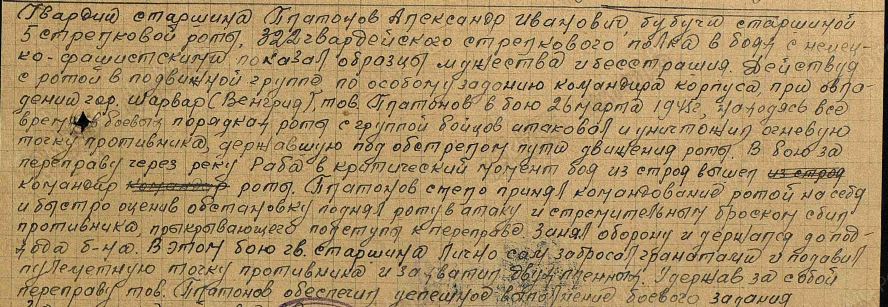 Гвардии старшина Платонов Александр Иванович, будучи старшиной
5 стрелковой роты, 322 гвардейского стрелкового полка в боях с немец-
ко-фашистскими показал образцы мужества и бесстрашия. Действуя
с ротой в подвижной группе по особому заданию командира корпуса при овла-
дении гор. Шарвар (Венгрия), тов. Платонов в бою 26 марта 1945г, находясь все
время в боевых порядках роты с группой бойцов атаковал и уничтожил огневую
точку противника, державшую под обстрелом пути движения роты. В бою за
переправу через реку Раба в критический момент боя из строя вышел из строя
командир командир роты. Платонов смело принял командование ротой на себя
и быстро оценив обстановку поднял роту в атаку и стремительным броском сбил
противника, прикрывающего подступы к переправе. Занял оборону и держался до под-
хода б-на. В этом бою гв. старшина лично сам забросал гранатами и подавил
пулеметную точку противника и захватил двух пленных. Удержав за собой
переправу тов. Платонов обеспечил успешное выполнение боевого задания